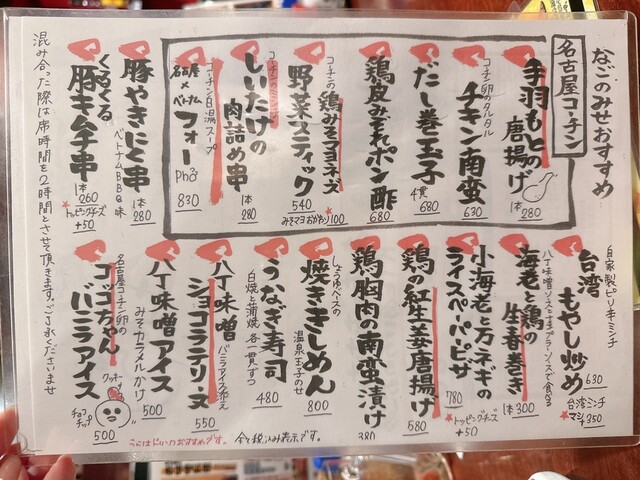 なごのみせおすすめ
名古屋コーチン
手羽もとの唐揚げ
1本280
コーチン卵のタルタル
チキン南蛮
630
だし巻玉子
4貫680
鶏皮みぞれポン酢
680
コーチンの鶏みそマヨネーズ
野菜スティック
540
みそマヨおかわり100
コーチンのミンチ
しいたけの肉詰め串
1本280
コーチン白湯スープ
名古屋×ベトナム
フォー
Phở
830
豚やきにく串
ベトナムBBQ味
1本280
くるくる豚キムチ串
1本260
★トッピングチーズ+50
混み合った際は席時間を2時間とさせて頂きます。ご了承くださいませ
自家製ピリ辛ミンチ
台湾もやし炒め
630
★台湾ミンチマシ+350
八丁味噌ソースとナまプラーソースで食べる
海老と鶏の生春巻き
1本300
小海老と万ネギのライスペーパーピザ
780
★トッピングチーズ+50
鶏の紅生姜唐揚げ
580
鶏胸肉の南蛮漬け
380
しょうゆベースの
焼ききしめん
温泉玉子のせ
800
うなぎ寿司
白焼と蒲焼 各一貫ずつ
480
八丁味噌ショコラテリーヌ
バニラアイス添え
550
八丁味噌アイス
みそカラメルかけ
500
名古屋コーチン卵の
コッコちゃんバニラアイス
クッキー
チョコチップ
500
うらはどりいのおすすめです。
全て税込み表示です。